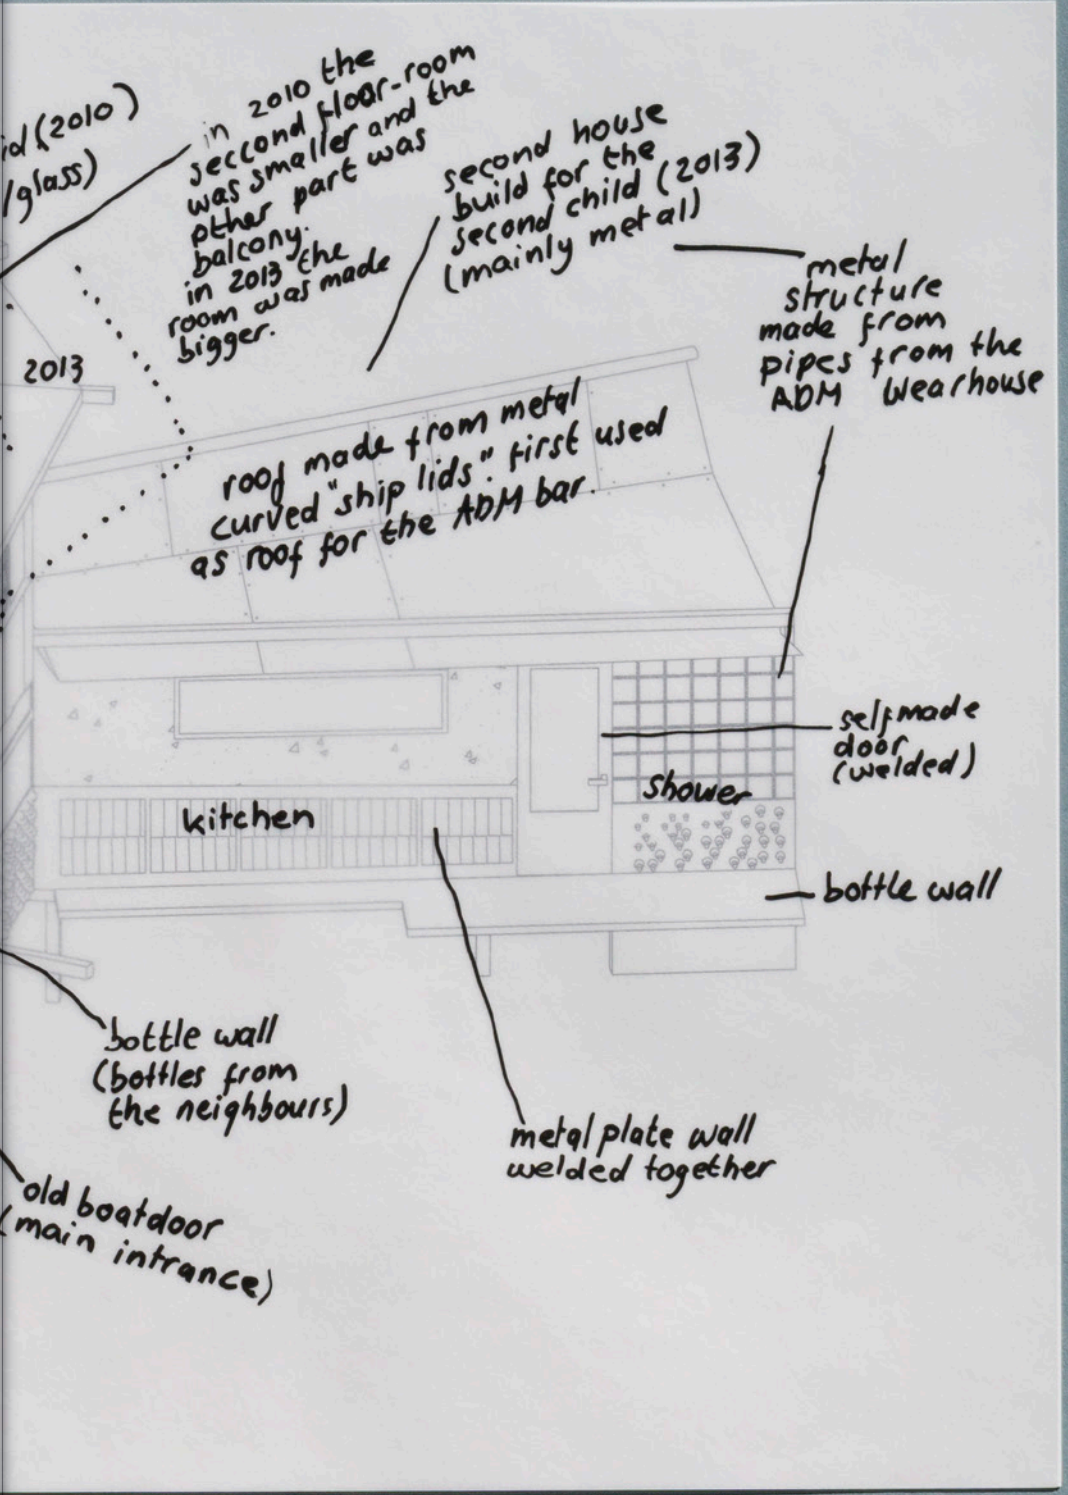 id (2010)
/glass)
in 2010 the
seccond floor-room
was smaller and the
other part was
balcony.
in 2013 the
room was made
bigger.
second house
build for the
second child (2013)
(mainly metal)
metal
structure
made from
pipes from the
ADM Wearhouse
2013
roof made from metal
curved "ship lids". first used
as roof for the ADM bar.
selfmade
door
(welded)
shower
kitchen
bottle wall
bottle wall
(bottles from
the neighbours)
metal plate wall
welded together
old boatdoor
(main intrance)